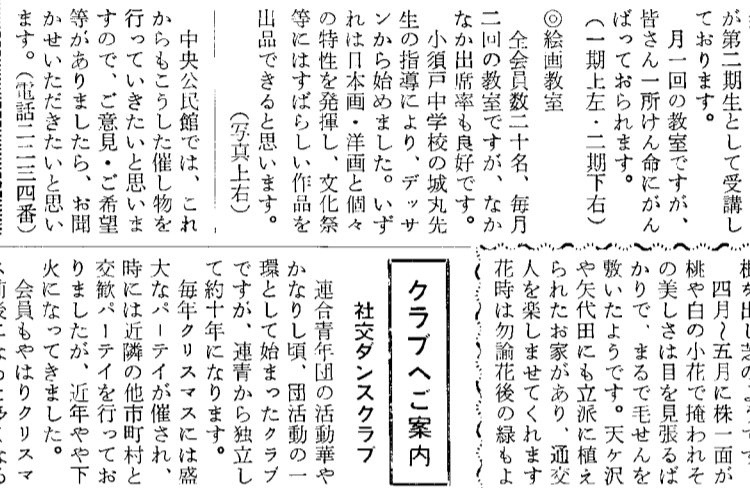 が第二期生として受講し
ております。
月一回の教室ですが、
皆さん一所けん命にがん
ばっておられます。
(一期上左・二期下右)
◎絵画教室
全会員数二十名、毎月
二回の教室ですが、なか
なか出席率も良好です。
小須戸中学校の城丸先
生の指導により、デッサ
ンから始めました。いず
れは日本画・洋画と個々
の特性を発揮し、文化祭
等にはすばらしい作品を
出品できると思います。
(写真上右)
中央公民館では、これ
からもこうした催し物を
行っていきたいと思いま
すので、ご意見・ご希望
等がありましたら、お聞
かせいただきたいと思い
ます。(電話二二三四番)
四月〜五月に株一面が
桃や白の小花で掩われそ
の美しさは目を見張るば
かりで、まるで毛せんを
敷いたようです。天ヶ沢
や矢代田にも立派に植え
られたお家があり、通交
人を楽しませてくれます
花時は勿論花後の緑もよ
クラブへご案内
社交ダンスクラブ
連合青年団の活動華や
かなりし頃、団活動の一
環として始まったクラブ
ですが、連青から独立し
て約十年になります。
毎年クリスマスには盛
大なパーテイが催され、
時には近隣の他市町村と
交歓パーテイを行ってお
りましたが、近年やや下
火になってきました。
会員もやはりクリスマ